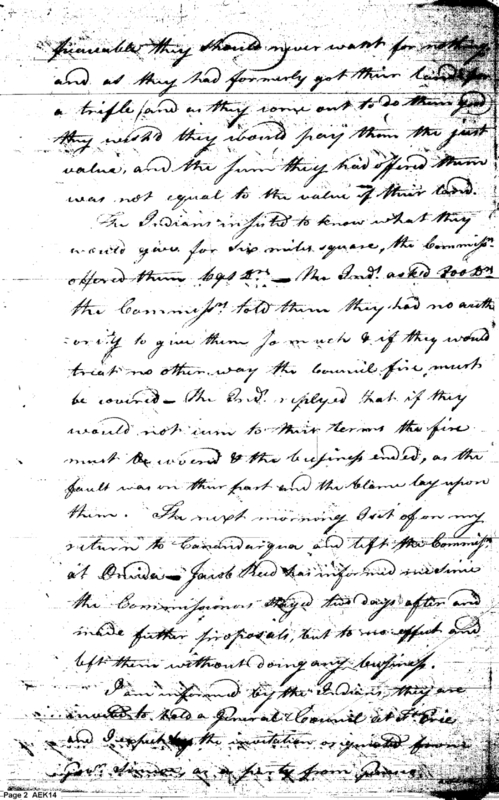 they should never want for nothing
and as they had formerly got their lands for
a trifle, and as they come out to do them good
they wish'd they would pay them the just
value, and the sum they had offered them
was not equal to the value of their land.
The Indians insisted to know what they
would give for six miles square, the Commiss.rs
offered them — The Ind.s asked
the Commiss.rs told them they had no auth
ority to give them so much & if they would
treat no other way the Council fire must
be covered — The Ind.s replyed that if they
would not cum to their terms the fire
must be covered & the business ended, as the
fault was on their part and the blame lay upon
them. The next morning I set of on my
return to Canandarqua and left the Commiss.rs
at Oneida — Jacob Reed has informed me since
the Commissioners stayed two days after and
made futher proposals, but to no effect and
left them without doing any business.
I am informed by the Indians, they are
invited to hold a General Council at Ft Erie
and I expect the invitation
as from
Page 2 AEK14